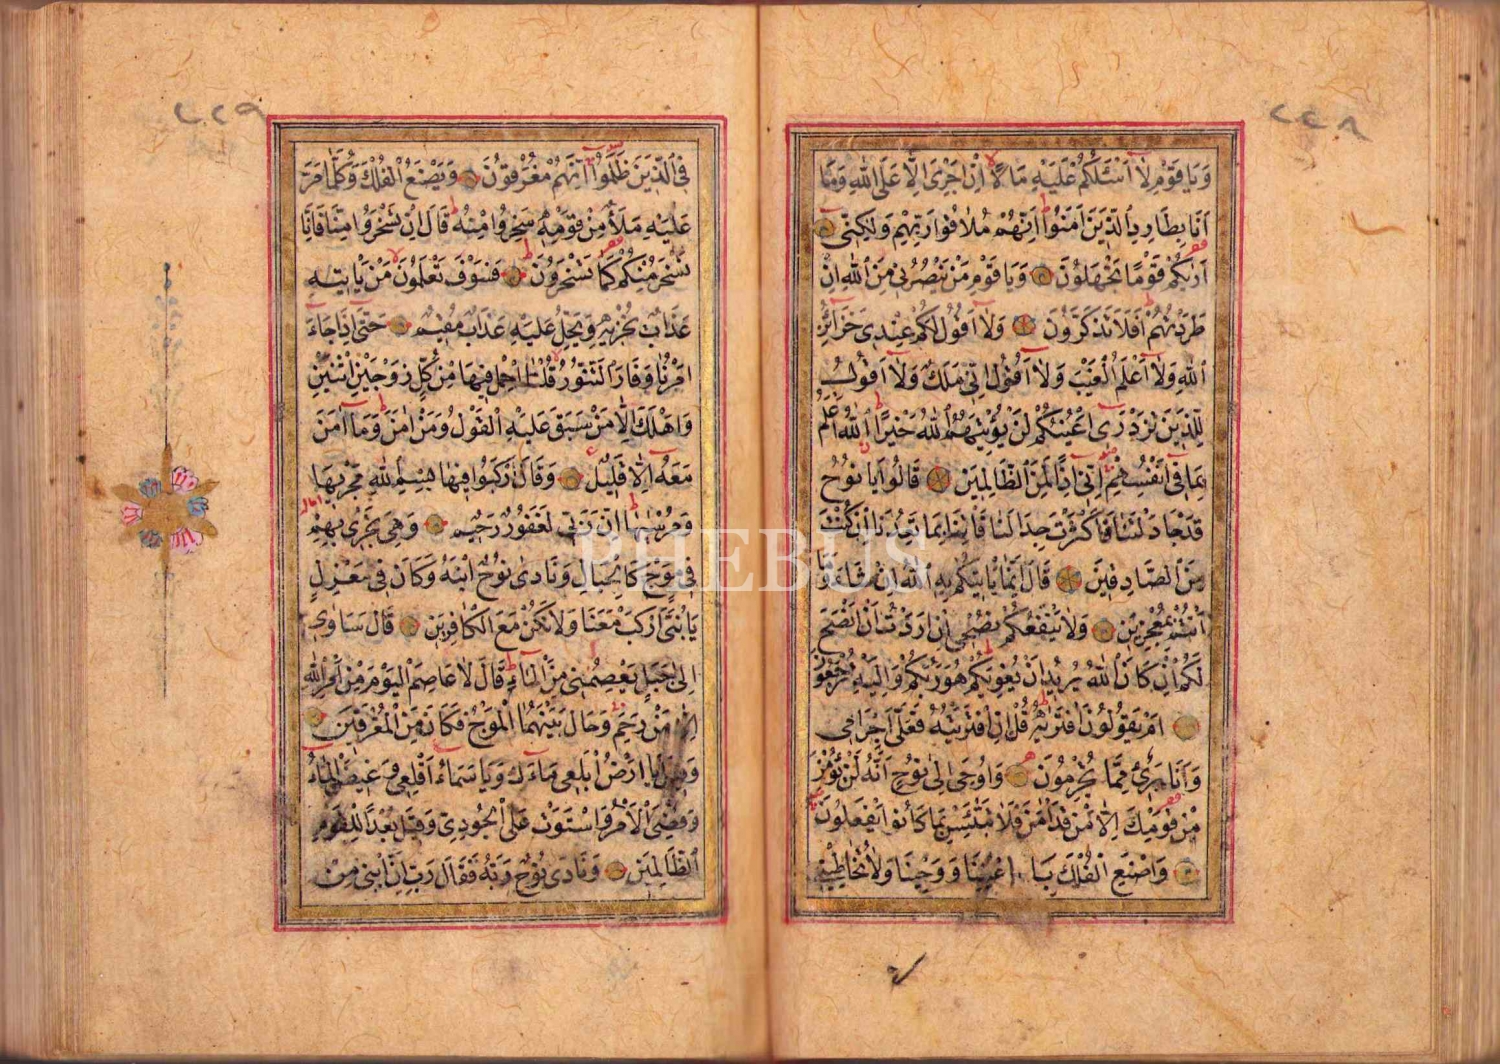 ٢٢٨
وَيَا قَوْمِ لَا أَسْئَلُكُمْ عَلَيْهِ مَالًا اِنْ اَجْرِىَ اِلَّا عَلَى اللّٰهِ وَمَا
اَنَا بِطَارِدِ الَّذِينَ اٰمَنُوا اِنَّهُمْ مُلَاقُوا رَبِّهِمْ وَلٰكِنِّى
اَرٰيكُمْ قَوْمًا تَجْهَلُونَ وَيَا قَوْمِ مَنْ يَنْصُرُنِى مِنَ اللّٰهِ اِنْ
طَرَدْتُهُمْ اَفَلَا تَذَكَّرُونَ وَلَا اَقُولُ لَكُمْ عِنْدِى خَزَائِنُ
اللّٰهِ وَلَا اَعْلَمُ الْغَيْبَ وَلَا اَقُولُ اِنِّى مَلَكٌ وَلَا اَقُولُ
لِلَّذِينَ تَزْدَرِى اَعْيُنُكُمْ لَنْ يُؤْتِيَهُمُ اللّٰهُ خَيْرًا اَللّٰهُ اَعْلَمُ
بِمَا فِى اَنْفُسِهِمْ اِنِّى اِذًا لَمِنَ الظَّالِمِينَ قَالُوا يَا نُوحُ
قَدْ جَادَلْتَنَا فَاَكْثَرْتَ جِدَالَنَا فَأْتِنَا بِمَا تَعِدُنَا اِنْ كُنْتَ
مِنَ الصَّادِقِينَ قَالَ اِنَّمَا يَأْتِيكُمْ بِهِ اللّٰهُ اِنْ شَاءَ وَمَا
اَنْتُمْ بِمُعْجِزِينَ وَلَا يَنْفَعُكُمْ نُصْحِى اِنْ اَرَدْتُ اَنْ اَنْصَحَ
لَكُمْ اِنْ كَانَ اللّٰهُ يُرِيدُ اَنْ يُغْوِيَكُمْ هُوَ رَبُّكُمْ وَاِلَيْهِ تُرْجَعُونَ
اَمْ يَقُولُونَ افْتَرٰيهُ قُلْ اِنِ افْتَرَيْتُهُ فَعَلَىَّ اِجْرَامِى
وَاَنَا بَرِىءٌ مِمَّا تُجْرِمُونَ وَاُوحِىَ اِلٰى نُوحٍ اَنَّهُ لَنْ يُؤْمِنَ
مِنْ قَوْمِكَ اِلَّا مَنْ قَدْ اٰمَنَ فَلَا تَبْتَئِسْ بِمَا كَانُوا يَفْعَلُونَ
وَاصْنَعِ الْفُلْكَ بِاَعْيُنِنَا وَوَحْيِنَا وَلَا تُخَاطِبْنِى
٢٢٩
فِى الَّذِينَ ظَلَمُوا اِنَّهُمْ مُغْرَقُونَ وَيَصْنَعُ الْفُلْكَ وَكُلَّمَا مَرَّ
عَلَيْهِ مَلَأٌ مِنْ قَوْمِهِ سَخِرُوا مِنْهُ قَالَ اِنْ تَسْخَرُوا مِنَّا فَاِنَّا
نَسْخَرُ مِنْكُمْ كَمَا تَسْخَرُونَ فَسَوْفَ تَعْلَمُونَ مَنْ يَأْتِيهِ
عَذَابٌ يُخْزِيهِ وَيَحِلُّ عَلَيْهِ عَذَابٌ مُقِيمٌ حَتّٰى اِذَا جَاءَ
اَمْرُنَا وَفَارَ التَّنُّورُ قُلْنَا احْمِلْ فِيهَا مِنْ كُلٍّ زَوْجَيْنِ اثْنَيْنِ
وَاَهْلَكَ اِلَّا مَنْ سَبَقَ عَلَيْهِ الْقَوْلُ وَمَنْ اٰمَنَ وَمَا اٰمَنَ
مَعَهُ اِلَّا قَلِيلٌ وَقَالَ ارْكَبُوا فِيهَا بِسْمِ اللّٰهِ مَجْرٰيهَا
وَمُرْسٰيهَا اِنَّ رَبِّى لَغَفُورٌ رَحِيمٌ وَهِىَ تَجْرِى بِهِمْ
فِى مَوْجٍ كَالْجِبَالِ وَنَادٰى نُوحٌ ابْنَهُ وَكَانَ فِى مَعْزِلٍ
يَا بُنَىَّ ارْكَبْ مَعَنَا وَلَا تَكُنْ مَعَ الْكَافِرِينَ قَالَ سَاٰوِى
اِلٰى جَبَلٍ يَعْصِمُنِى مِنَ الْمَاءِ قَالَ لَا عَاصِمَ الْيَوْمَ مِنْ اَمْرِ اللّٰهِ
اِلَّا مَنْ رَحِمَ وَحَالَ بَيْنَهُمَا الْمَوْجُ فَكَانَ مِنَ الْمُغْرَقِينَ
وَقِيلَ يَا اَرْضُ ابْلَعِى مَاءَكِ وَيَا سَمَاءُ اَقْلِعِى وَغِيضَ الْمَاءُ
وَقُضِىَ الْاَمْرُ وَاسْتَوَتْ عَلَى الْجُودِىِّ وَقِيلَ بُعْدًا لِلْقَوْمِ
الظَّالِمِينَ وَنَادٰى نُوحٌ رَبَّهُ فَقَالَ رَبِّ اِنَّ ابْنِى مِنْ
PHEBUS